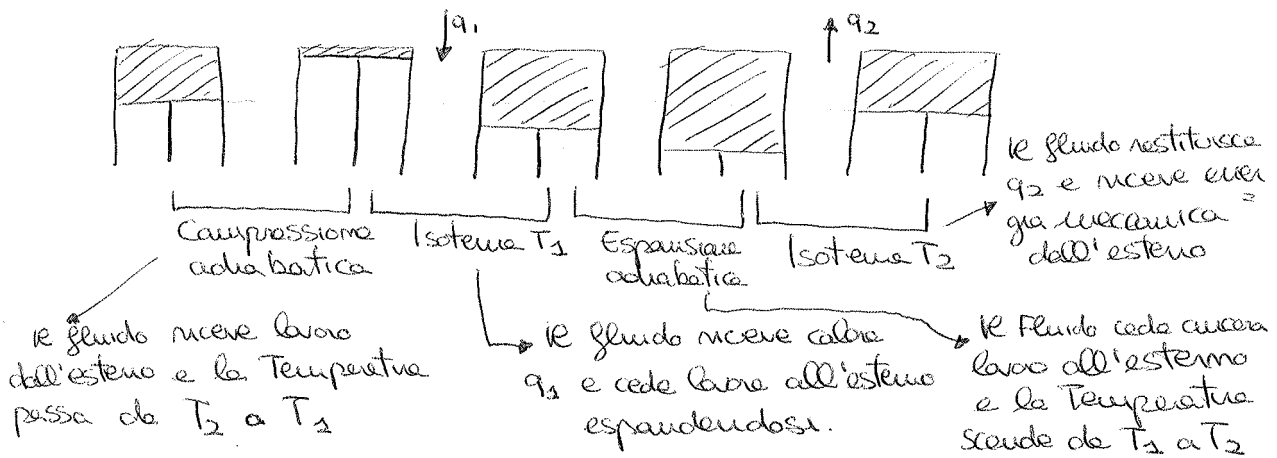 q1
q2
Compressione
adiabatica
Isoterma T1
Espansione
adiabatica
Isoterma T2
il fluido restituisce
q2 e riceve ener
gia meccanica
dall'esterno
il fluido riceve lavoro
dall'esterno e la Temperatura
passa da T2 a T1
il fluido riceve calore
q1 e cede lavoro all'esterno
espandendosi.
il Fluido cede ancora
lavoro all'esterno
e la Temperatura
scende da T1 a T2